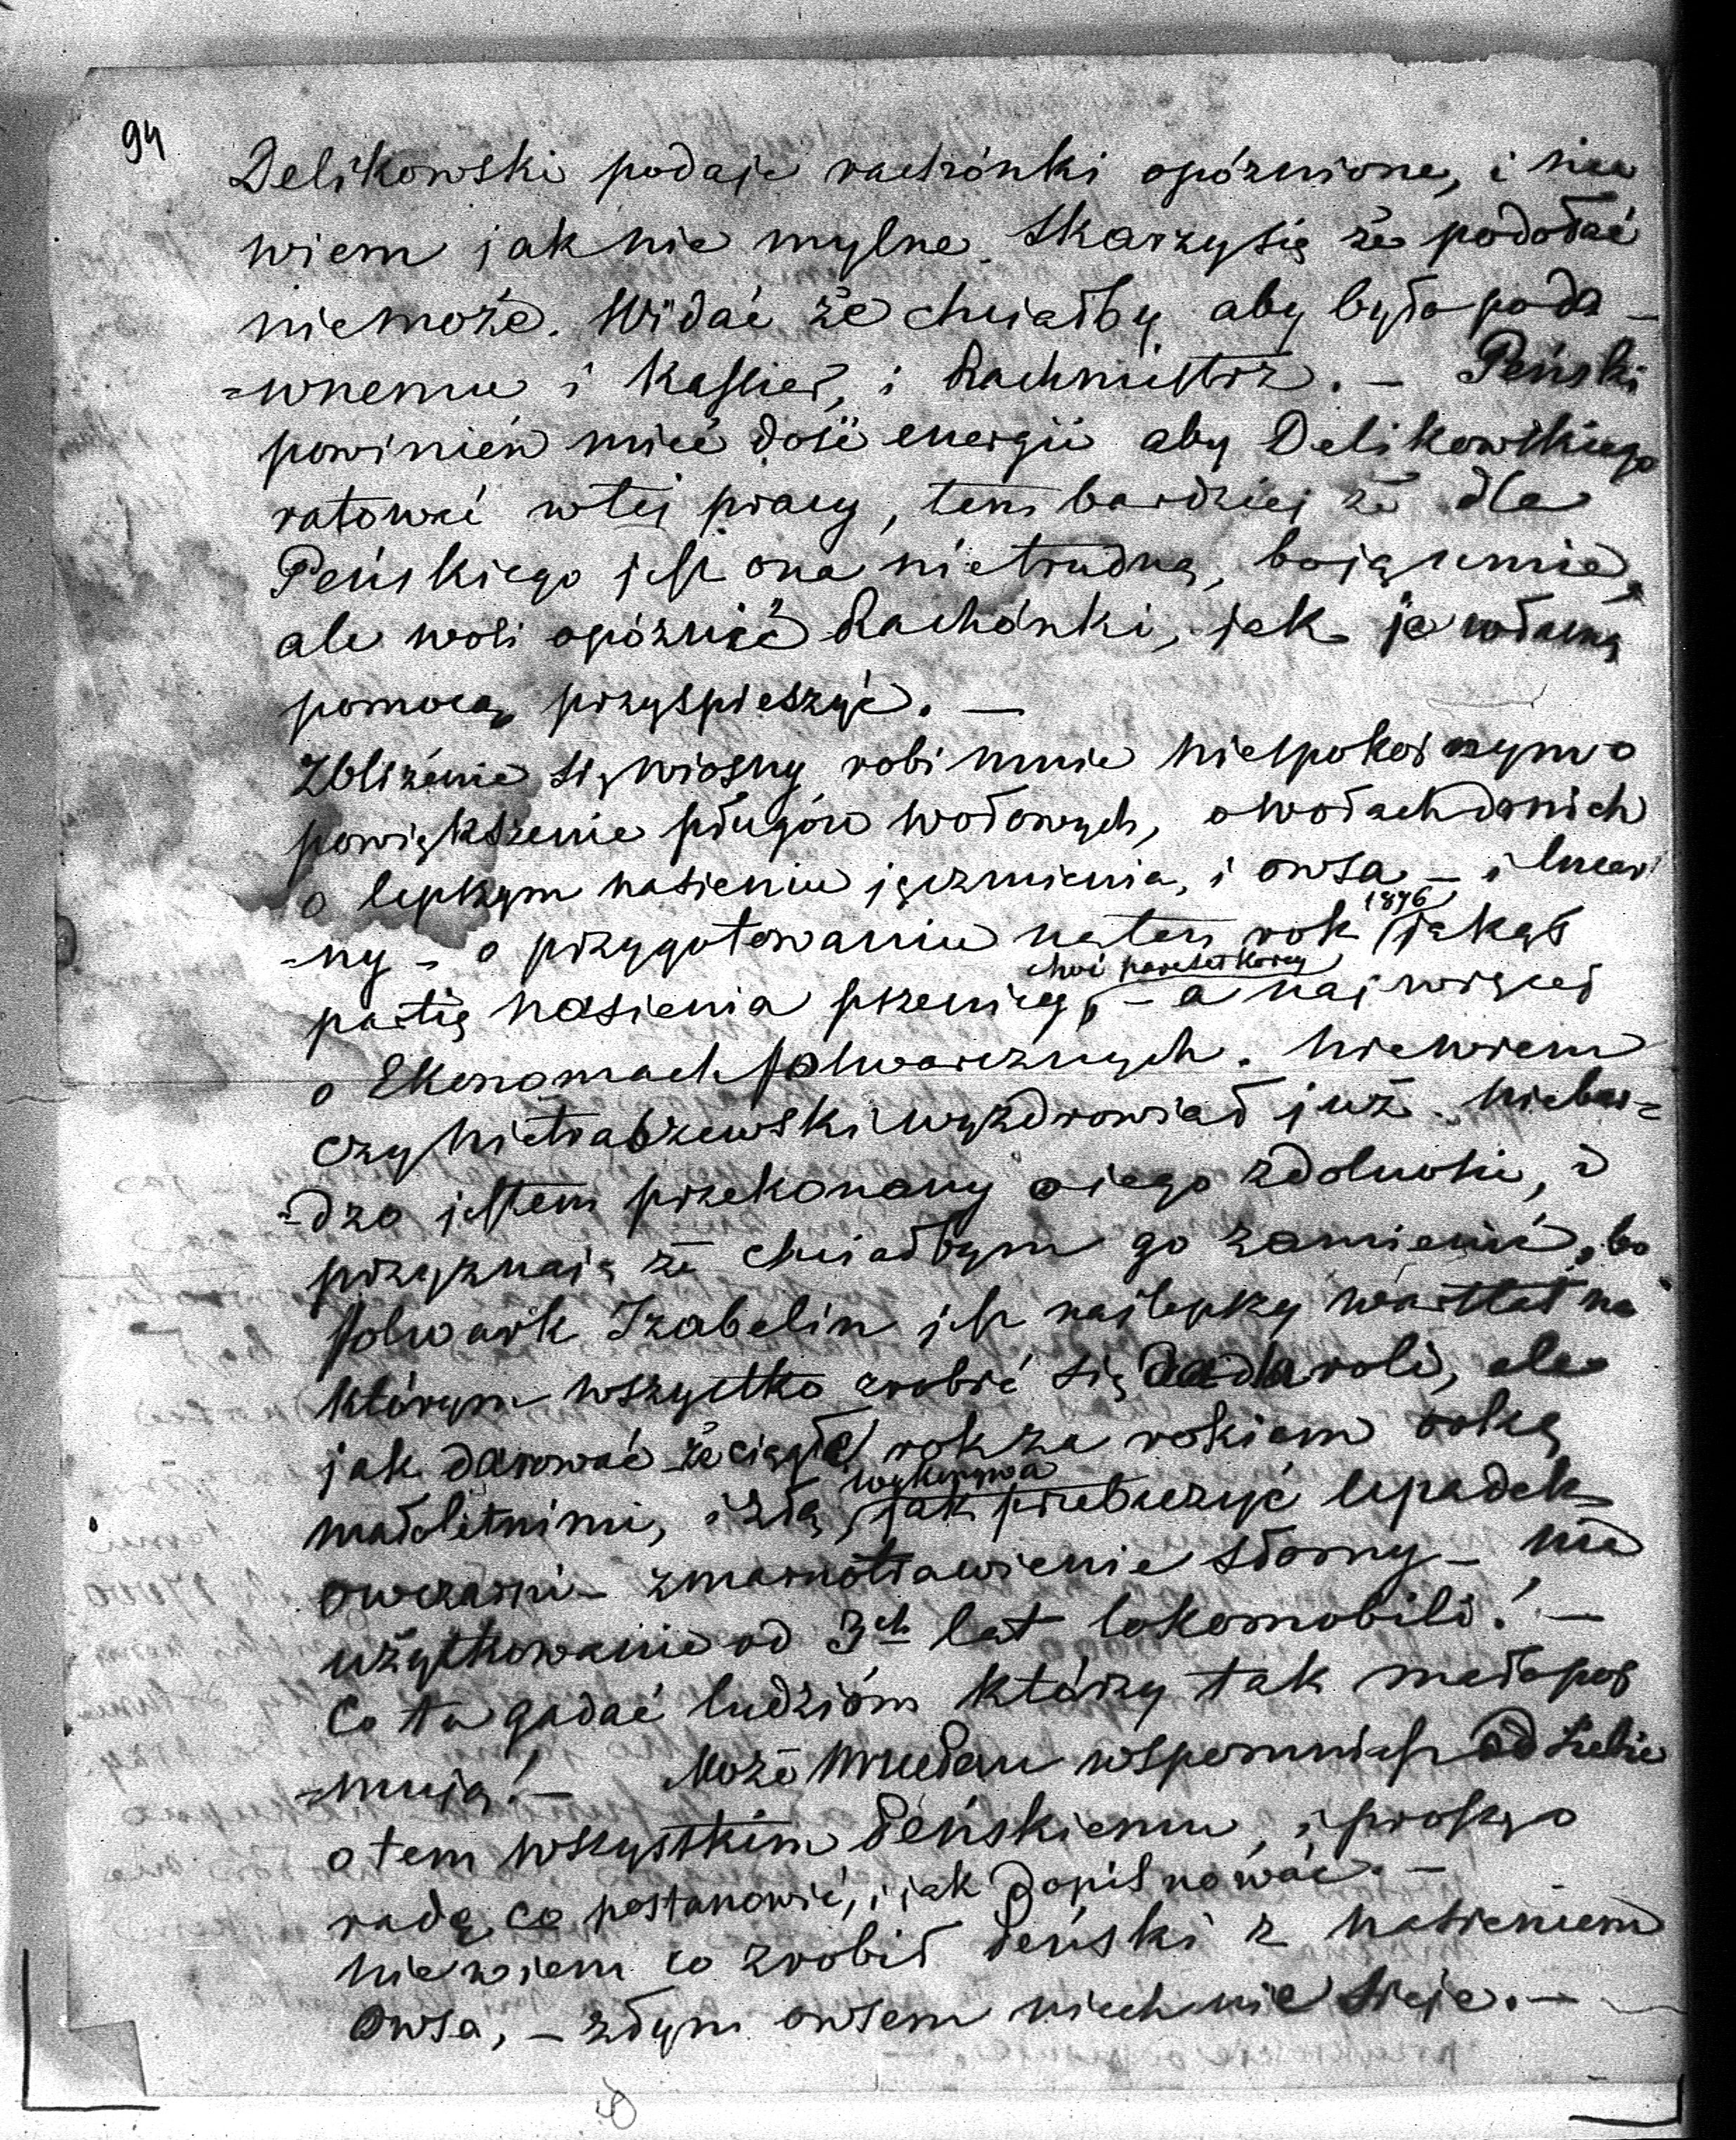 94
Delikowski podaje rachónki opóznione, i nie
wiem jak nie mylne. Skarzysię że podołać
niemoże. Widać że chciałby aby było poda-
=wnemu i Kassier, i Rachmistrz. – Peński
powinień mieć dość energii aby Delikowskiego
ratować wtej pracy, tem bardziej że dla
Peńskiego jest ona nietrudną, bo ją umie,
ale woli opóznić Rachónki, jak je własną
pomocą przyspieszyć. –
Zbliżenie się wiosny robi mnie niespokojnym o
powiększenie pługów wołowych, o wołach do nich
o lepszym nasieniu jęczmienia, i owsa – i lucer
=ny – o przygotowaniu na ten rok 1876 jakąś
choć paręset korcy
partię nasienia pszenicy, – a najwięcej
o Ekonomach folwarcznych. Niewiem
czy Nietrabrzewski wyzdrowiał już. Niebar=
=dzo jestem przekonany o jego zdolności, i
przyznaję że chciałbym go zamienić, bo
folwark Izabelin jest najlepszy warstat na
którym wszystko zrobić się da dla roli, ale
jak darować że ciągle rok za rokiem orką
wykonywa
małoletnimi, i złą, jak przebaczyć upadek
owczarni – zmarnotrawienie słomy – nie
użytkowanie od 3ch lat lokomobili! –
Co tu gadać ludzióm którzy tak mało poj
=mują! – Może wspomnisz od siebie
otem wszystkim Peńskiemu, i proszę o
radę, co postanowić, i jak dopilnować. –
Niewiem co zrobił Peński z nasieniem
Owsa, – złym owsem niech nie sieje. –